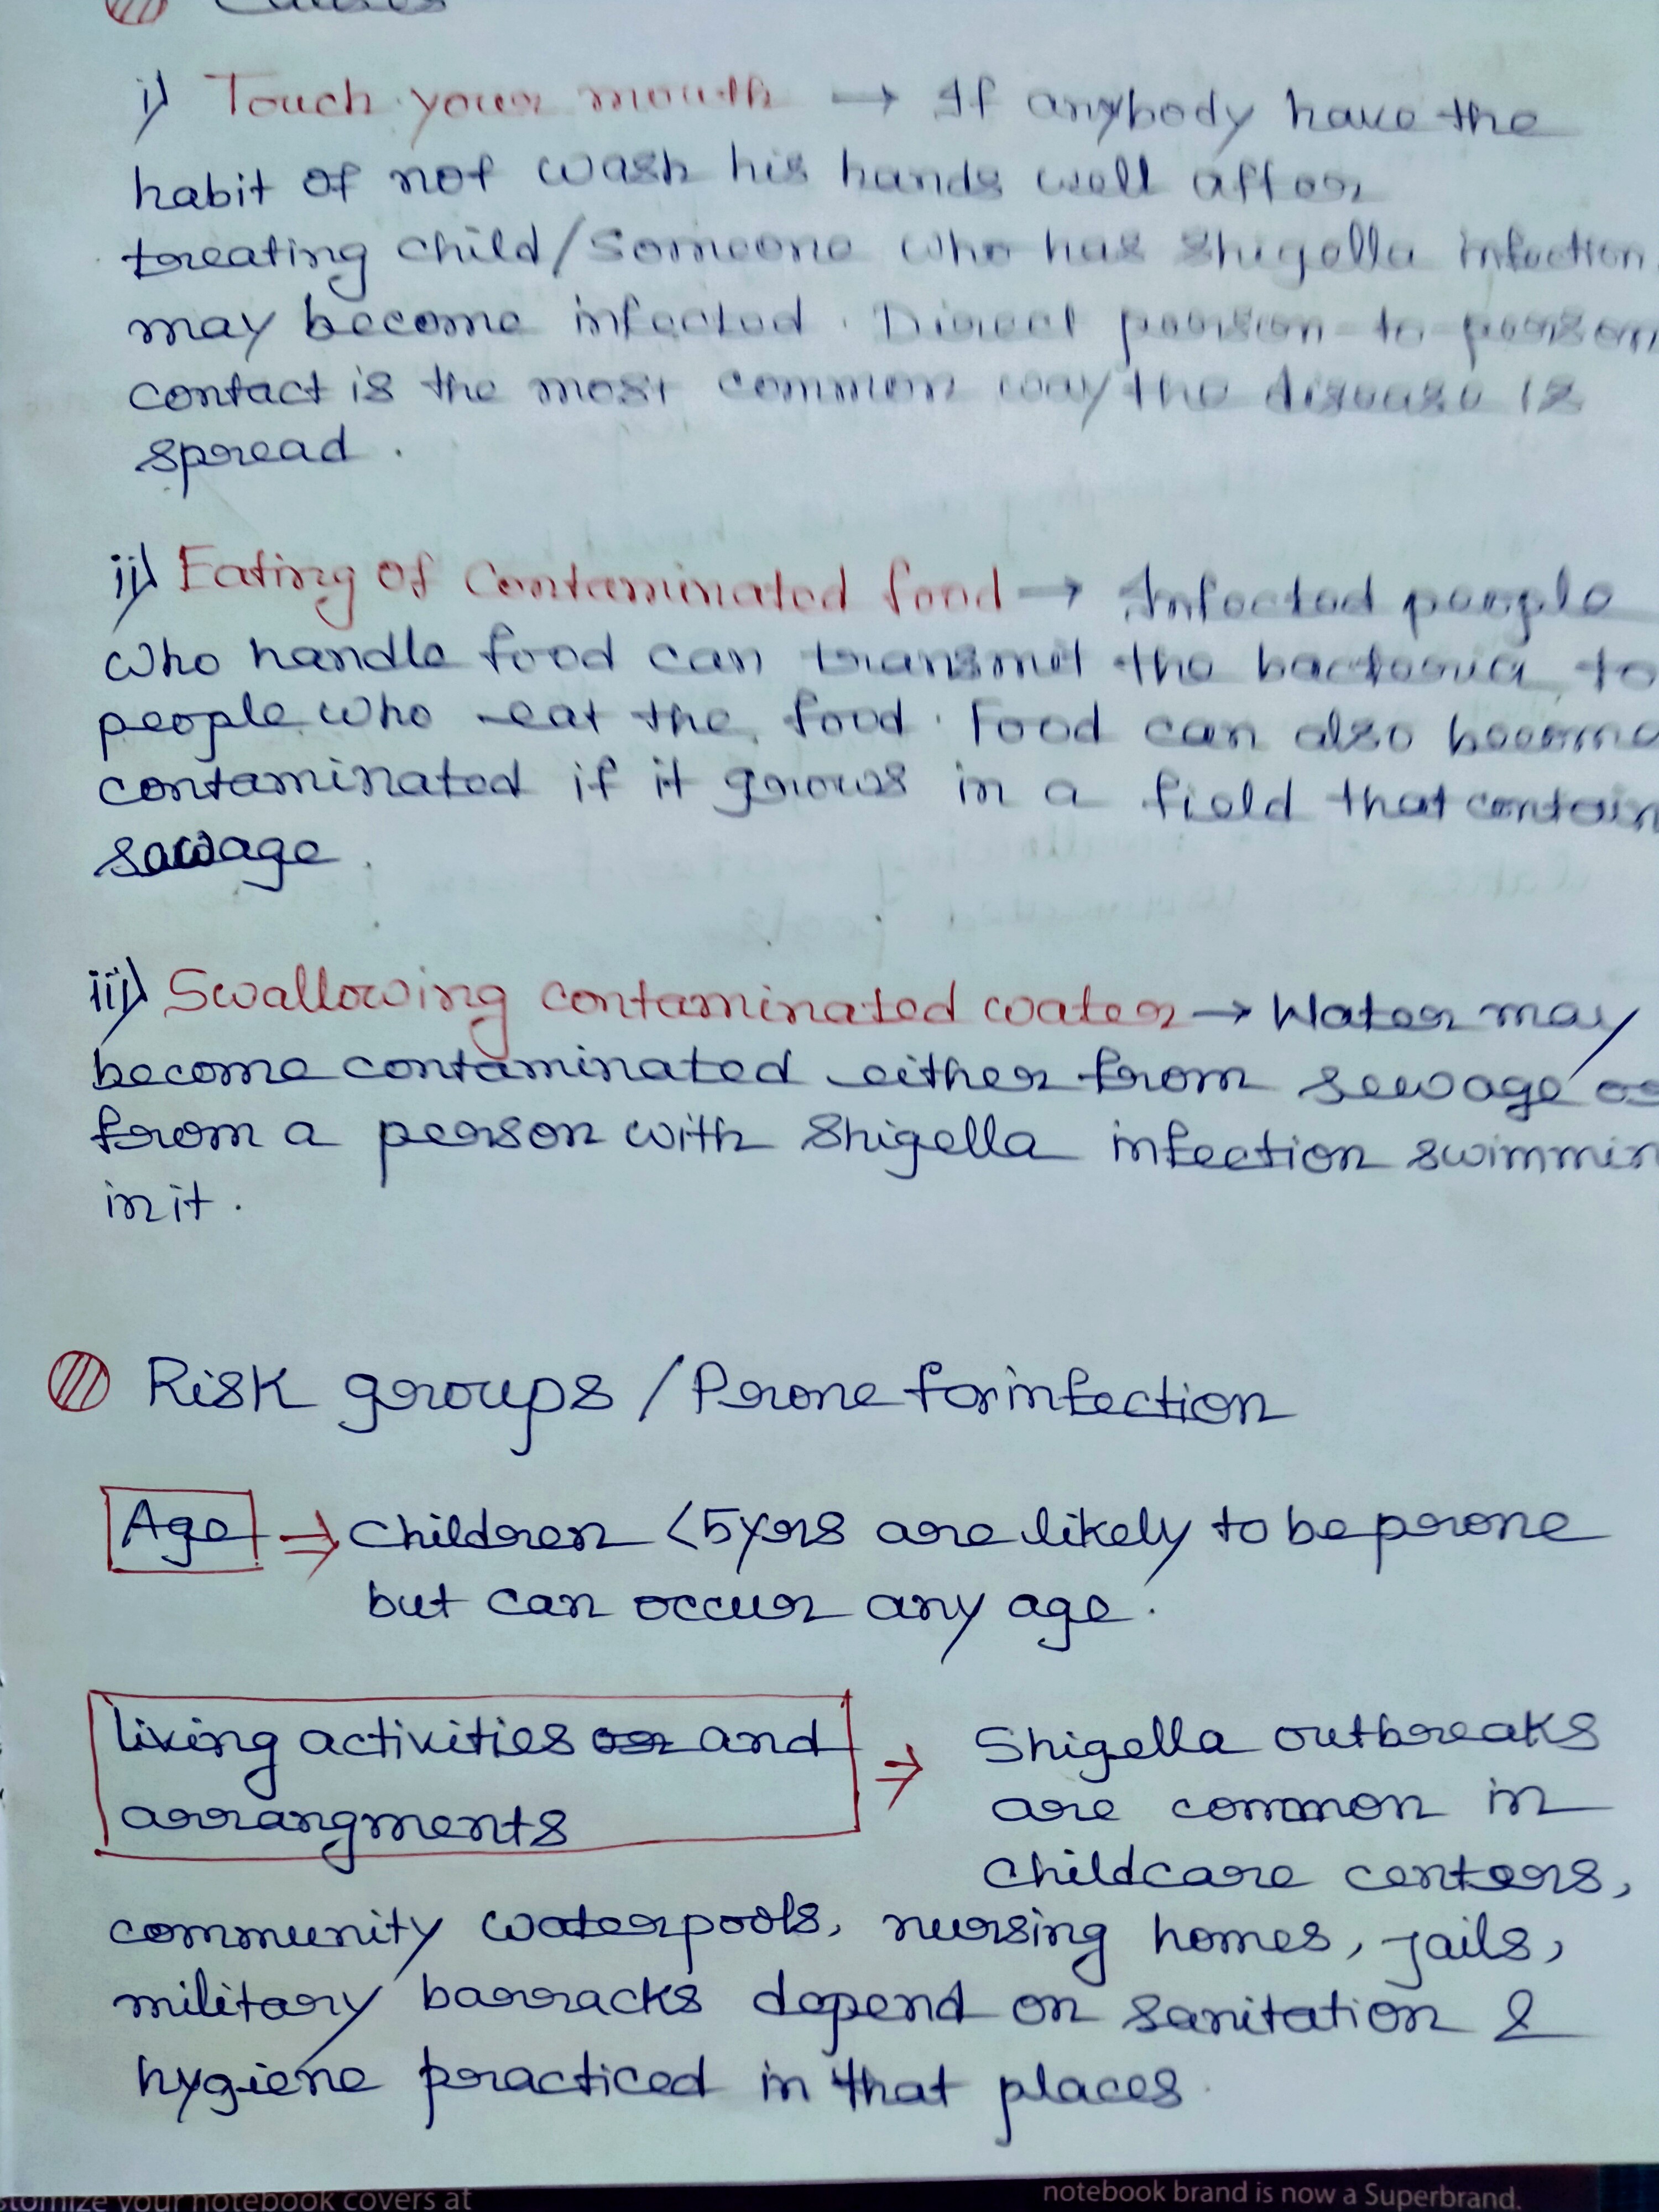 Causes
i) Touch your mouth → If anybody have the
habit of not wash his hands well after
treating child/someone who has Shigella infection
may become infected. Direct person-to-person
contact is the most common way the disease is
spread.
ii) Eating of contaminated food → Infected people
who handle food can transmit the bacteria to
people who eat the food. Food can also become
contaminated if it grows in a field that contain
sewage.
iii) Swallowing contaminated water → Water may
become contaminated either from sewage or
from a person with Shigella infection swimmin
in it.
Risk groups / Prone for infection
Age ⇒ Children <5yrs are likely to be prone
but can occur any age.
living activities or and ⇒ Shigella outbreaks
arrangments are common in
childcare centers,
community waterpools, nursing homes, jails,
military barracks depend on sanitation &
hygiene practiced in that places.
stomize your notebook covers at
notebook brand is now a Superbrand.